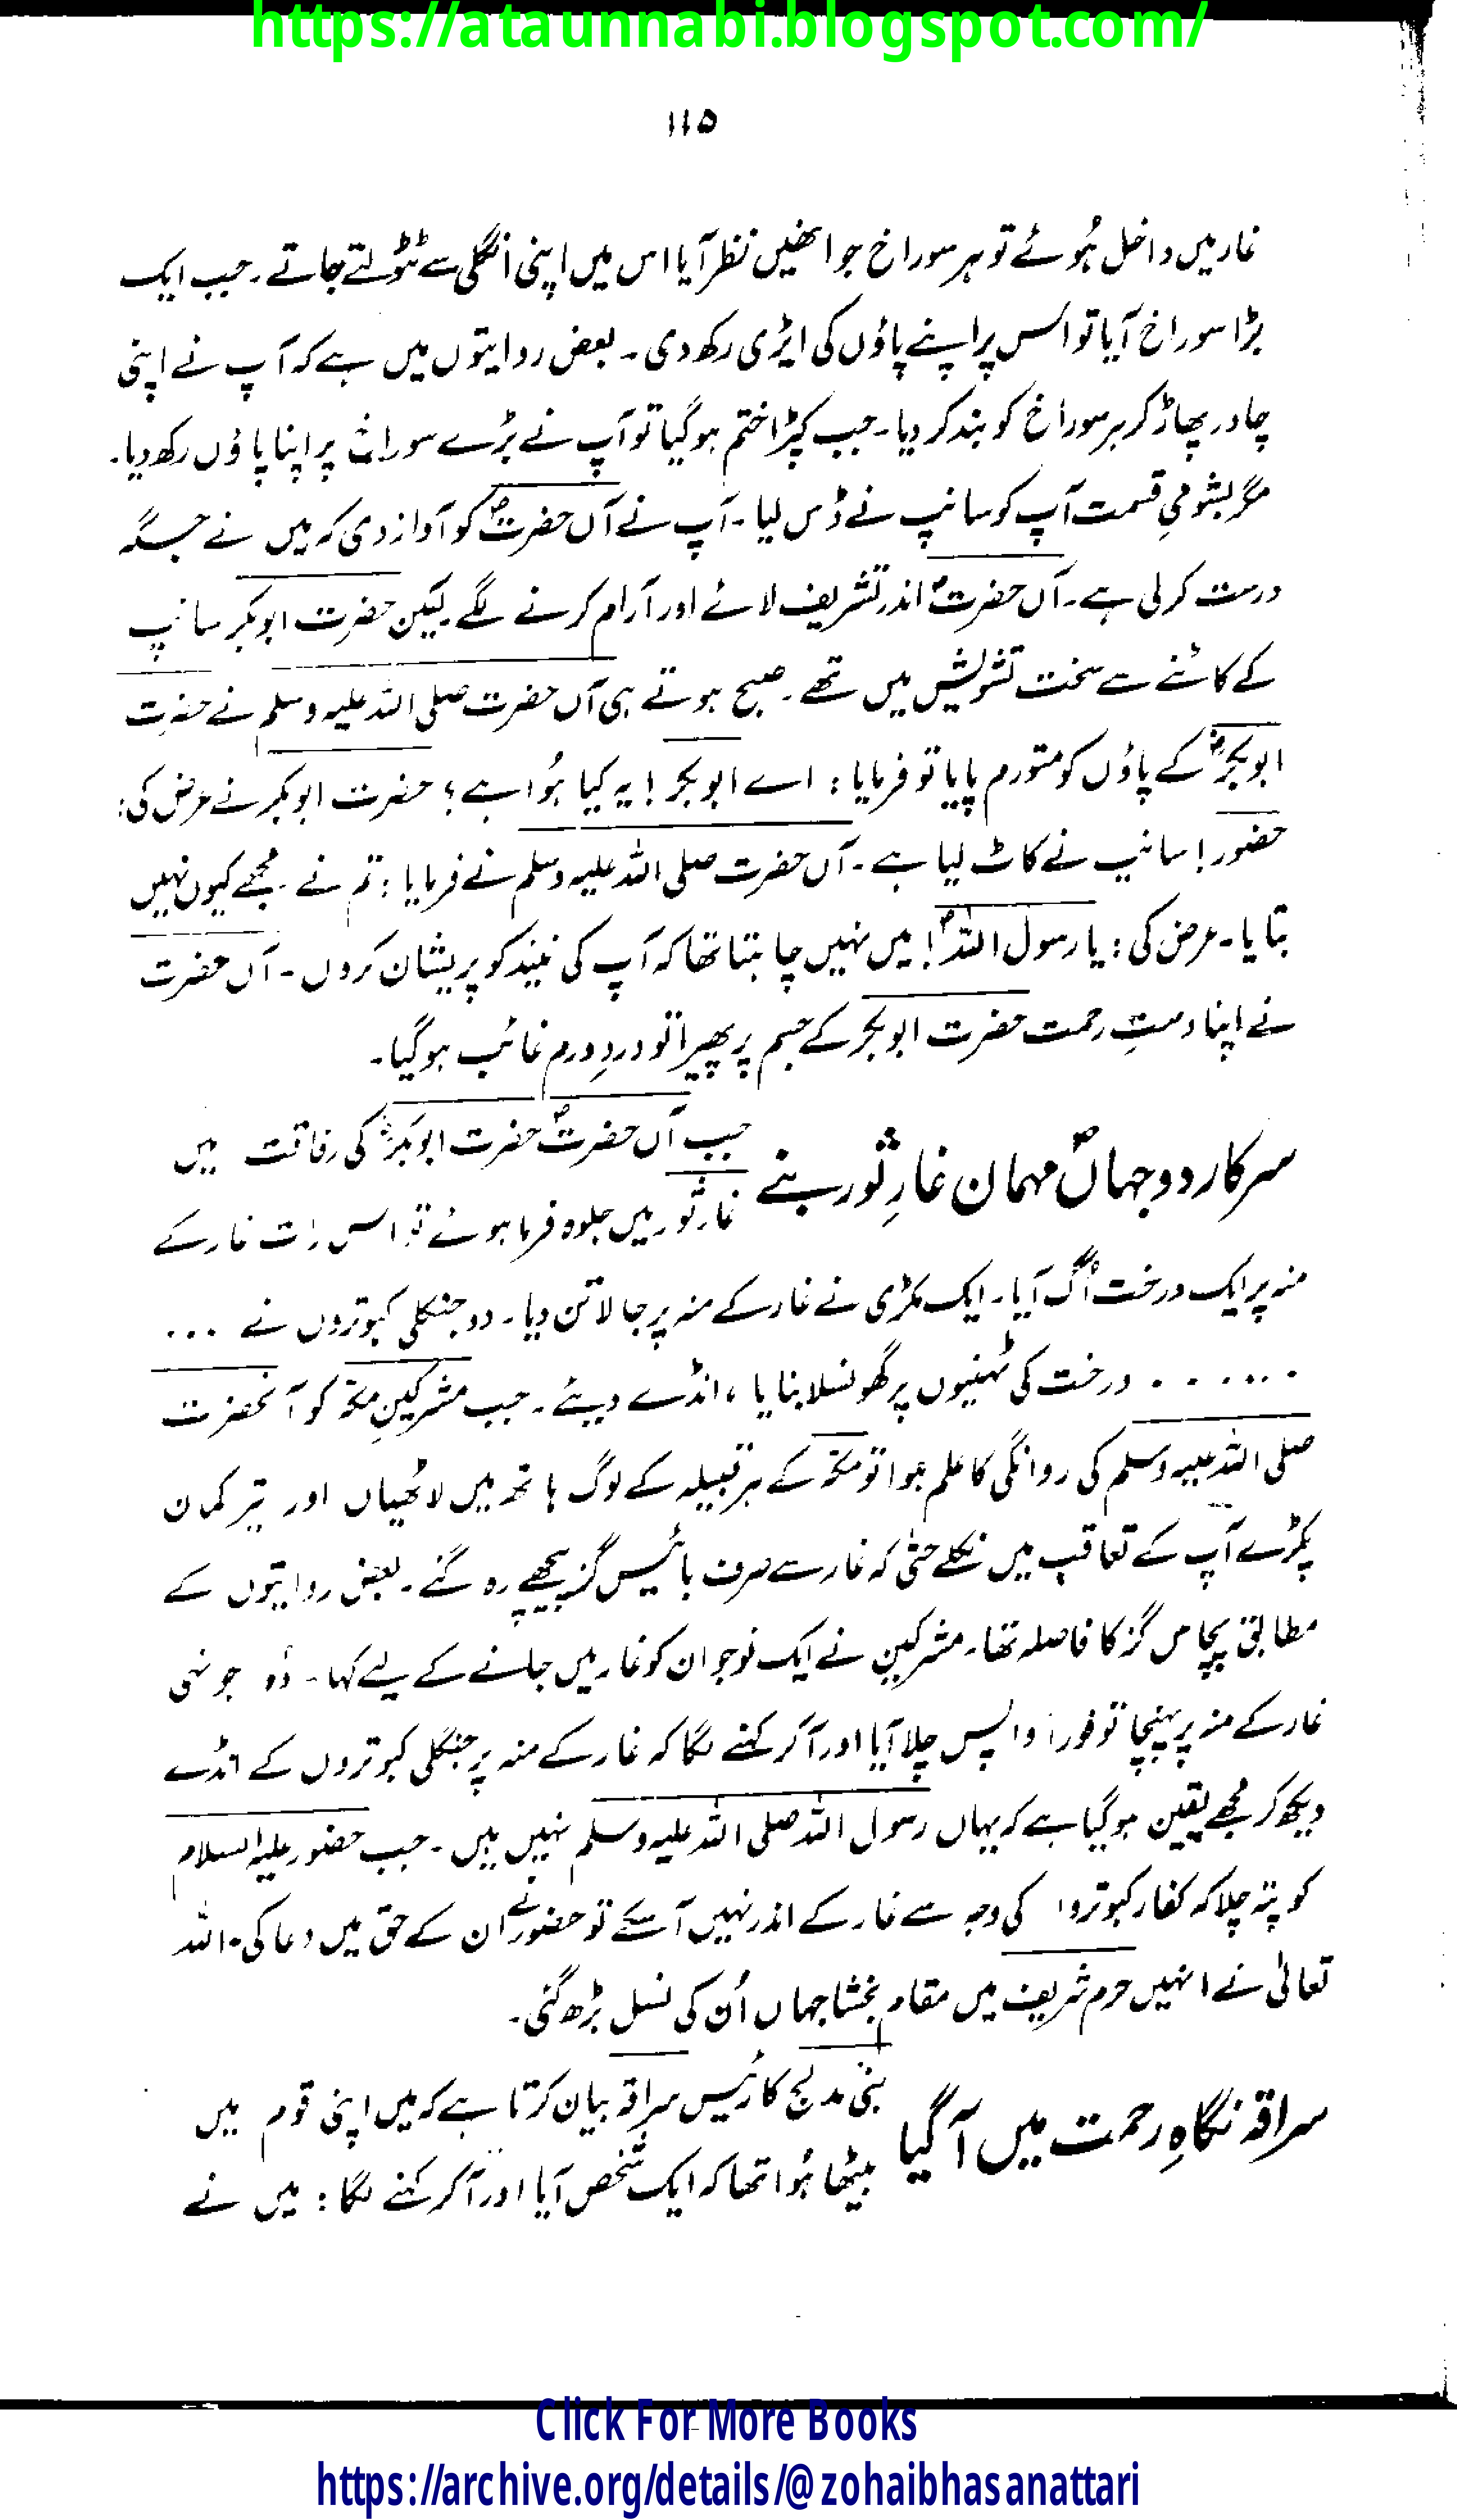 https://ataunnabi.blogspot.com/
۱۱۵
غار میں داخل ہُوئے تو ہر سوراخ جو انھیں نظر آیا اس میں اپنی انگلی سے ٹٹولتے جاتے۔ جب ایک
بڑا سوراخ آیا تو اُس پر اپنے پاؤں کی ایڑی رکھ دی۔ بعض روایتوں میں ہے کہ آپ نے اپنی
چادر پھاڑ کر ہر سوراخ کو بند کر دیا۔ جب کپڑا ختم ہوگیا تو آپ نے بڑے سوراخ پر اپنا پاؤں رکھ دیا۔
مگر بشومیِ قسمت آپ کو سانپ نے ڈس لیا۔ آپ نے آں حضرتؐ کو آواز دی کہ میں نے جگہ
درست کر لی ہے۔ آں حضرتؐ اندر تشریف لائے اور آرام کرنے لگے۔ لیکن حضرت ابوبکر سانپ
کے کاٹنے سے سخت تشویش میں تھے۔ صبح ہوتے ہی آں حضرت صلی اللہ علیہ وسلم نے حضرت
ابوبکرؓ کے پاؤں کو متورم پایا تو فرمایا : اے ابوبکر! یہ کیا ہُوا ہے؟ حضرت ابوبکر نے عرض کی:
حضور! سانپ نے کاٹ لیا ہے۔ آں حضرت صلی اللہ علیہ وسلم نے فرمایا : تم نے مجھے کیوں نہیں
بتایا۔ عرض کی : یا رسول اللہؐ! میں نہیں چاہتا تھا کہ آپ کی نیند کو پریشان کروں۔ آں حضرت
نے اپنا دستِ رحمت حضرت ابوبکر کے جسم پر پھیرا تو درد و ورم غائب ہو گیا۔
سرکارِ دو جہاںؐ مہمان غارِ ثور بنے
جب آں حضرتؐ حضرت ابوبکرؓ کی رفاقت میں
غارِ ثور میں جلوہ فرما ہوئے تو اس رات غار کے
منہ پر ایک درخت اُگ آیا۔ ایک مکڑی نے غار کے منہ پر جالا تن دیا۔ دو جنگلی کبوتروں نے ...
. . . . . . . درخت کی ٹہنیوں پر گھونسلا بنایا ، انڈے دیئے۔ جب مشرکینِ مکہ کو آنحضرت
صلی اللہ علیہ وسلم کی روانگی کا علم ہوا تو مکہ کے ہر قبیلہ کے لوگ ہاتھ میں لاٹھیاں اور تیر کمان
پکڑے آپ کے تعاقب میں نکلے حتیٰ کہ غار سے صرف بائیس گز پیچھے رہ گئے۔ بعض روایتوں کے
مطابق پچاس گز کا فاصلہ تھا۔ مشرکین نے ایک نوجوان کو غار میں جانے کے لیے کہا۔ وُہ جونہی
غار کے منہ پر پہنچا تو فوراً واپس چلا آیا اور آ کر کہنے لگا کہ غار کے منہ پر جنگلی کبوتروں کے انڈے
دیکھ کر مجھے یقین ہو گیا ہے کہ یہاں رسول اللہ صلی اللہ علیہ وسلم نہیں ہیں۔ جب حضور علیہ السلام
کو پتہ چلا کہ کفار کبوتروں کی وجہ سے غار کے اندر نہیں آ سکے تو حضور نے ان کے حق میں دعا کی۔ اللہ
تعالیٰ نے انہیں حرم شریف میں مقام بخشا جہاں اُن کی نسل بڑھ گئی۔
سراقہ نگاہِ رحمت میں آگیا
بنی مدلج کا رئیس سراقہ بیان کرتا ہے کہ میں اپنی قوم میں
بیٹھا ہُوا تھا کہ ایک شخص آیا اور آ کر کہنے لگا : میں نے
Click For More Books
https://archive.org/details/@zohaibhasanattari